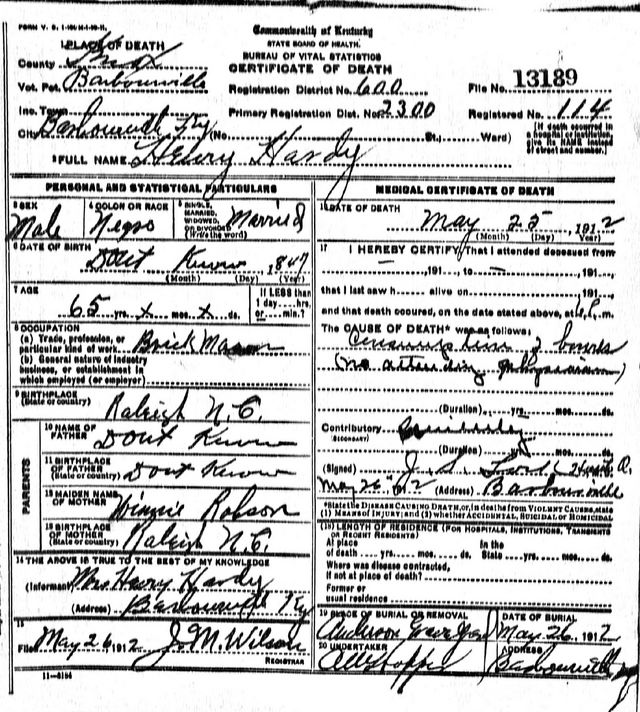 FORM V. S. 1-
Commonwealth of Kentucky
STATE BOARD OF HEALTH.
BUREAU OF VITAL STATISTICS
CERTIFICATE OF DEATH
1 PLACE OF DEATH
County Knox
Vot. Pct. Barbourville
Inc. Town
City Barbourville Ky (No. St.; Ward)
Registration District No. 600
File No. 13189
Primary Registration Dist. No. 2300
Registered No. 114
[If death occurred in a hospital or institution, give its NAME instead of street and number.]
2 FULL NAME Henry Hardy
PERSONAL AND STATISTICAL PARTICULARS
3 SEX Male
4 COLOR OR RACE Negro
5 SINGLE, MARRIED, WIDOWED, OR DIVORCED (Write the word) Married
6 DATE OF BIRTH Dont Know, 1847
(Month) (Day) (Year)
7 AGE 65 yrs. x mos. x ds.
If LESS than 1 day....hrs. or....min.?
8 OCCUPATION
(a) Trade, profession, or particular kind of work Brick Mason
(b) General nature of Industry business, or establishment in which employed (or employer)
9 BIRTHPLACE (State or country) Raleigh N.C.
PARENTS
10 NAME OF FATHER Dont Know
11 BIRTHPLACE OF FATHER (State or country) Dont Know
12 MAIDEN NAME OF MOTHER Winnie Robson
13 BIRTHPLACE OF MOTHER (State or country) Raleigh N.C.
14 THE ABOVE IS TRUE TO THE BEST OF MY KNOWLEDGE
(Informant) Mrs Henry Hardy
(Address) Barbourville Ky
15
Filed May 26 1912 J. M. Wilson
REGISTRAR
11-3184
MEDICAL CERTIFICATE OF DEATH
16 DATE OF DEATH May 25, 1912
(Month) (Day) (Year)
17 I HEREBY CERTIFY, That I attended deceased from
, 191 , to , 191 ,
that I last saw h alive on , 191 ,
and that death occured, on the date stated above, at m.
The CAUSE OF DEATH* was as follows:
Consumption of bowels
(no attending physician)
(Duration) yrs. mos. ds.
Contributory
(SECONDARY)
(Duration) yrs. mos. ds.
(Signed) J. S.
May 26, 1912 (Address) Barbourville
*State the DISEASE CAUSING DEATH, or, in deaths from VIOLENT CAUSES, state (1) MEANS OF INJURY; and (2) whether ACCIDENTAL, SUICIDAL or HOMICIDAL
18 LENGTH OF RESIDENCE (FOR HOSPITALS, INSTITUTIONS, TRANSIENTS OR RECENT RESIDENTS)
At place of death yrs. mos. ds. In the State yrs. mos. ds.
Where was disease contracted, If not at place of death?
Former or usual residence
19 PLACE OF BURIAL OR REMOVAL Anderson
DATE OF BURIAL May 26, 1912
20 UNDERTAKER
ADDRESS Barbourville